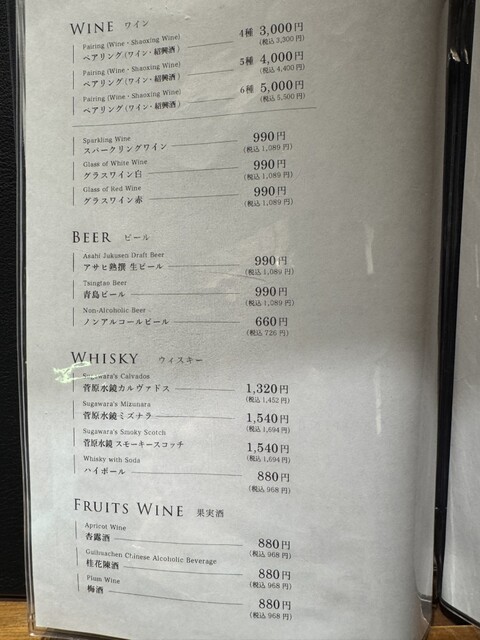 WINE ワイン
Pairing (Wine・Shaoxing Wine)
ペアリング(ワイン・紹興酒) 4種 3,000円
(税込3,300円)
Pairing (Wine・Shaoxing Wine)
ペアリング(ワイン・紹興酒) 5種 4,000円
(税込4,400円)
Pairing (Wine・Shaoxing Wine)
ペアリング(ワイン・紹興酒) 6種 5,000円
(税込5,500円)
Sparkling Wine
スパークリングワイン 990円
(税込1,089円)
Glass of White Wine
グラスワイン白 990円
(税込1,089円)
Glass of Red Wine
グラスワイン赤 990円
(税込1,089円)
BEER ビール
Asahi Jukusen Draft Beer
アサヒ熟撰 生ビール 990円
(税込1,089円)
Tsingtao Beer
青島ビール 990円
(税込1,089円)
Non-Alcoholic Beer
ノンアルコールビール 660円
(税込726円)
WHISKY ウィスキー
Sugawara's Calvados
菅原水鏡カルヴァドス 1,320円
(税込1,452円)
Sugawara's Mizunara
菅原水鏡ミズナラ 1,540円
(税込1,694円)
Sugawara's Smoky Scotch
菅原水鏡 スモーキースコッチ 1,540円
(税込1,694円)
Whisky with Soda
ハイボール 880円
(税込968円)
FRUITS WINE 果実酒
Apricot Wine
杏露酒 880円
(税込968円)
Guihuachen Chinese Alcoholic Beverage
桂花陳酒 880円
(税込968円)
Plum Wine
梅酒 880円
(税込968円)